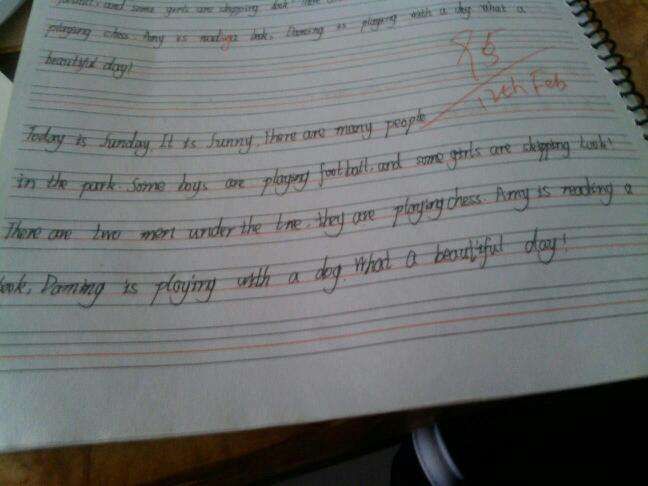 and some girls are skipping look!
playing chess. Amy is reading a book, Daming is playing with a dog what a
beautiful day!
95
12th Feb
Today is Sunday. It is Sunny, there are many people
in the park. Some boys are playing football, and some girls are skipping Look!
There are two men under the tree, they are playing chess. Amy is reading a
book, Daming is playing with a dog. What a beautiful day!